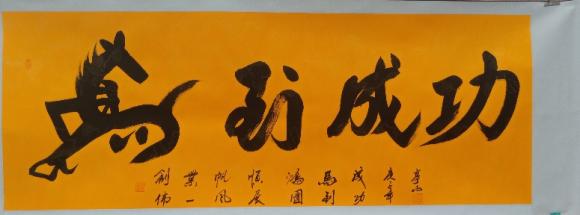 馬到成功
創偉
業一
帆風
順展
鴻圖
馬到
成功